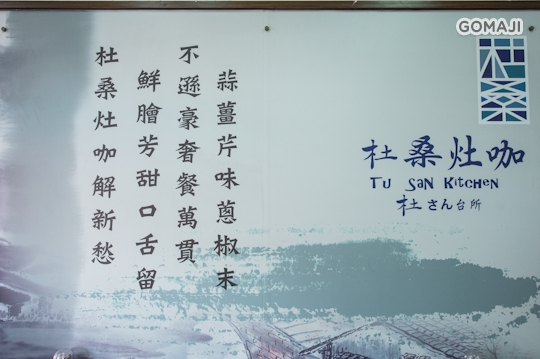 GOMAJI
杜桑
蒜薑芹味蔥椒末
不遜豪奢餐萬貫
鮮膾芳甜口舌留
杜桑灶咖解新愁
杜桑灶咖
TU SaN KitCHEN
杜さん台所